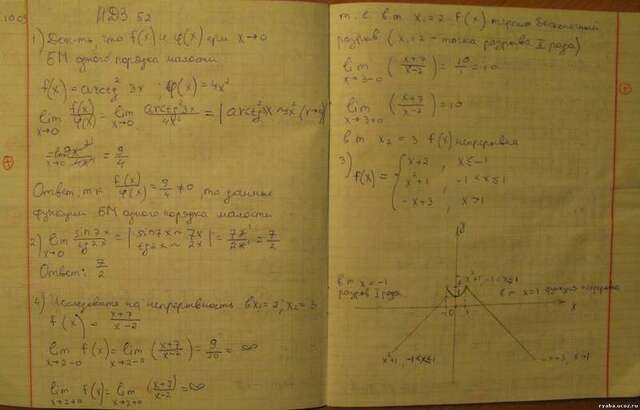 ИДЗ 52
1) Док-ть, что f(x) и φ(x) при x→0
БМ одного порядка малости
f(x) = arctg² 3x ; φ(x) = 4x²
lim x→0 f(x)/φ(x) = lim x→0 arctg² 3x / 4x² =
= 9/4
Ответ: т.к. f(x)/φ(x) = 9/4 ≠ 0, то данные
функции БМ одного порядка малости
2) lim x→0 sin 7x / tg 2x = | sin 7x ~ 7x tg 2x ~ 2x | = 7x/2x = 7/2
Ответ: 7/2
4) Исследовать на непрерывность в x₁ = 2; x₂ = 3
f(x) = x+7 / x-2
lim x→2-0 f(x) = lim x→2-0 (x+7 / x-2) = 9/ = ∞
lim x→2+0 f(x) = lim x→2+0 (x+7 / x-2) = ∞
т.е. в т. x₁ = 2 f(x) терпит бесконечный
разрыв (x₁ = 2 - точка разрыва II рода)
lim x→3-0 (x+7 / x-2) = 10/ = 10
lim x→3+0 (x+7 / x-2) = 10
в т. x₂ = 3 f(x) непрерывна
3) f(x) = { x+2, x ≤ -1
x²+1, -1 < x ≤ 1
-x+3, x > 1
x²+1 -1<x≤1
в т. x = -1
разрыв I рода
в т. x = 1 функция непрерывна
x
x²+1, -1<x≤1
-x+3, x>1
ryaba.ucoz.ru